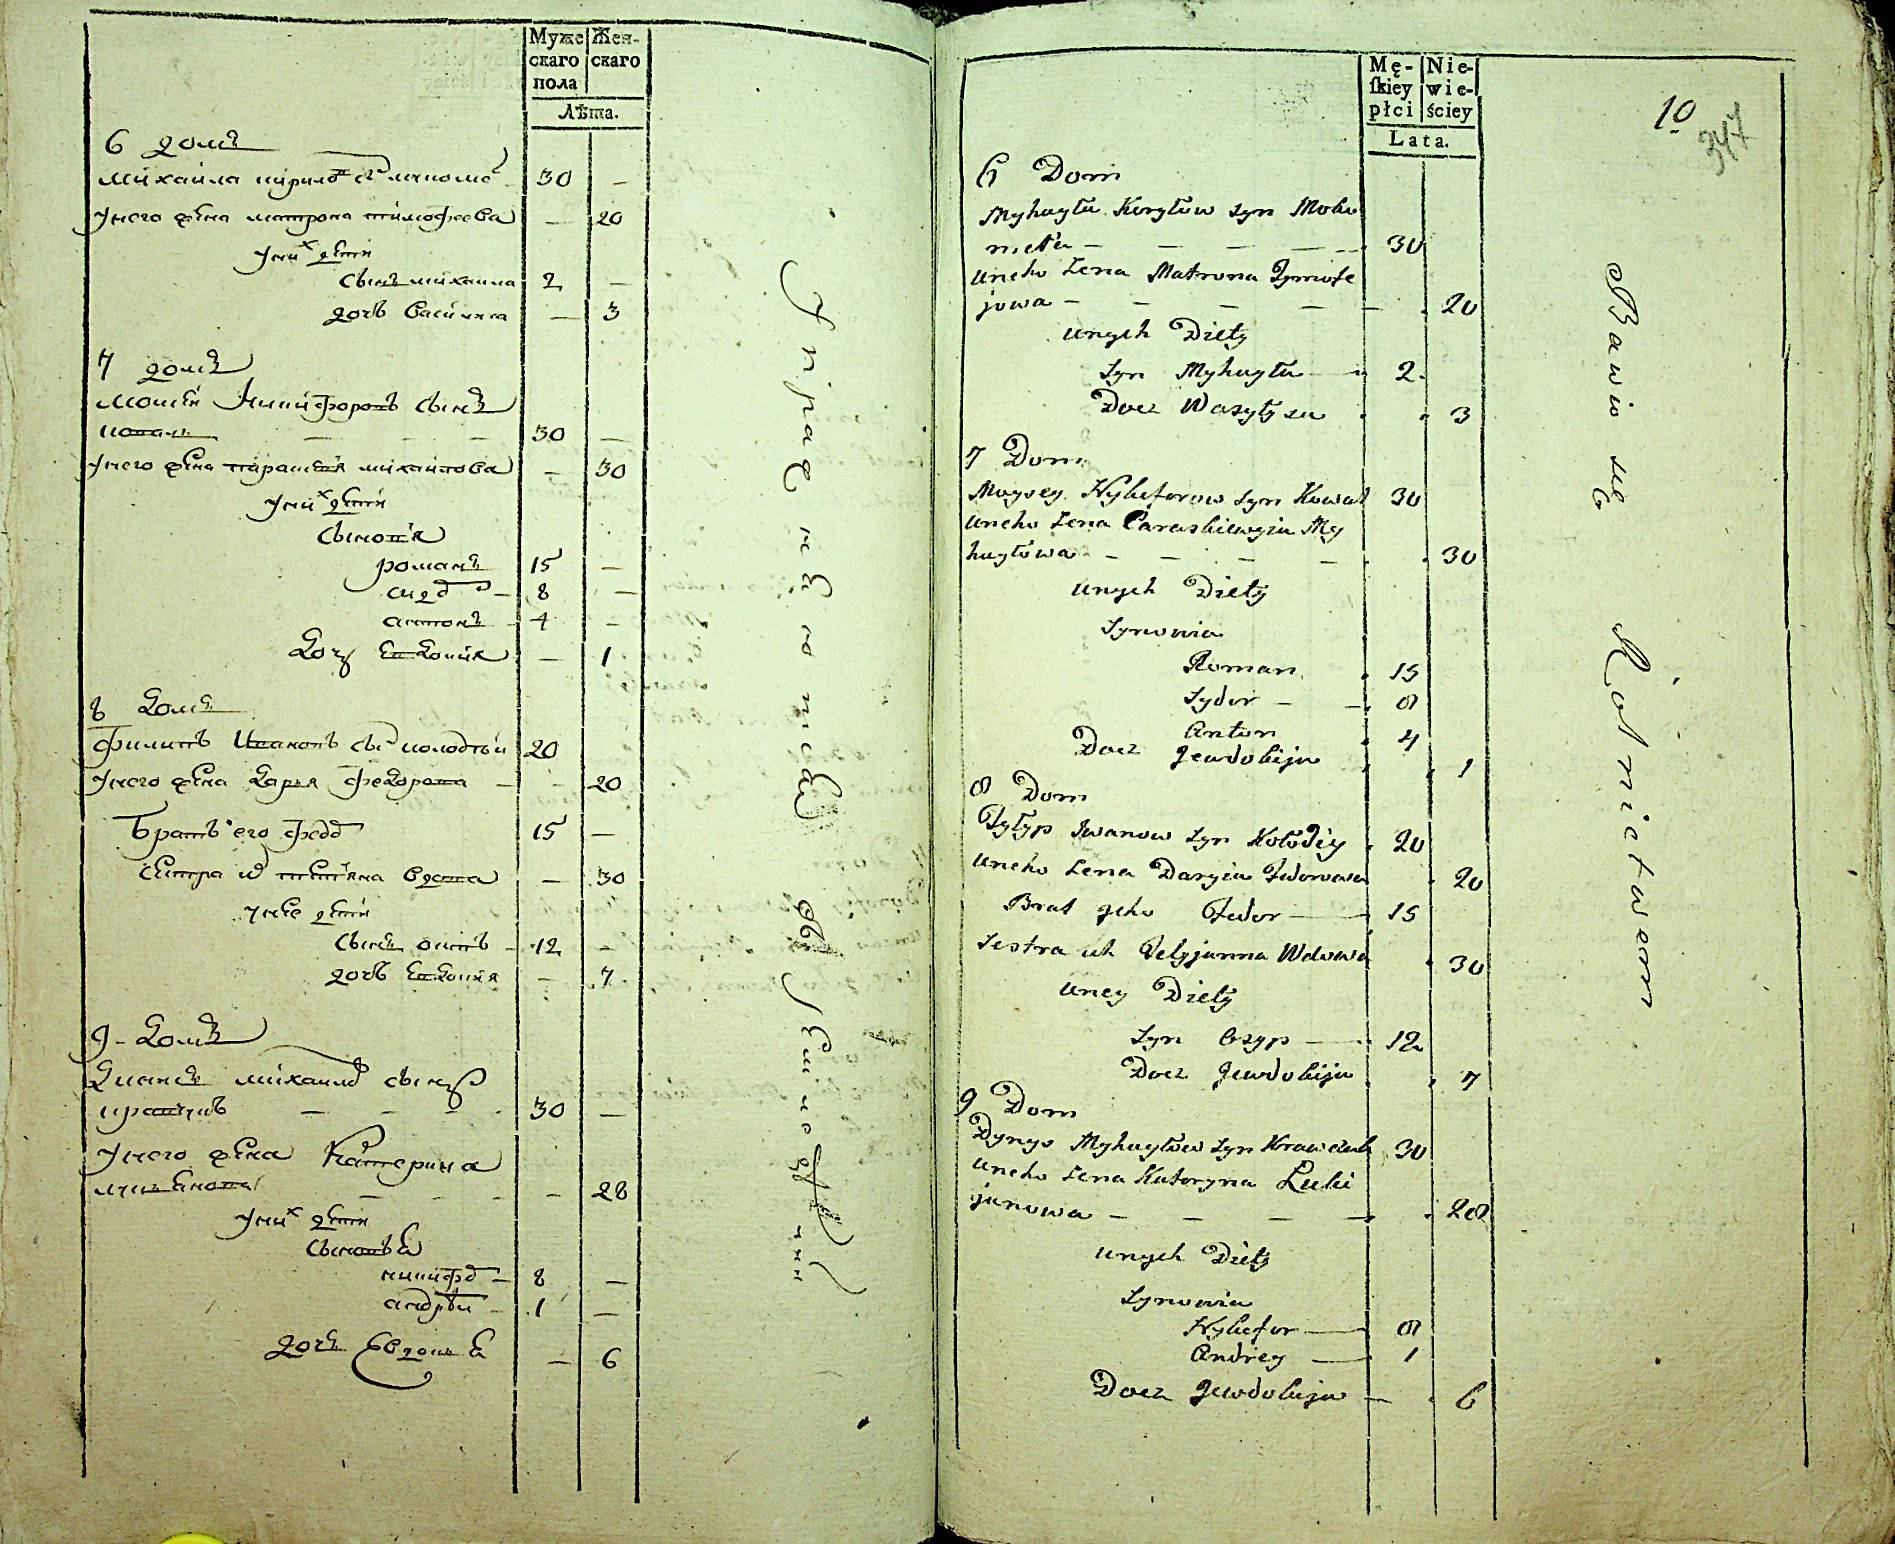 Муже
скаго
пола
Жен-
скаго
Лѣта.
6 домъ
Михаила Кирилов сн
30 —
Унего жена матрона тимофеева — 20
Уних дети
сынъ михаила 2 —
дочь василиса — 3
7 домъ
Моисей Никифоровъ сынъ
коваль — — — 30 —
Унего жена параскевия михайлова — 30
Уних дети
сыновя
романъ 15 —
сидор — 8 —
антонъ — 4 —
дочъ Евдокия — 1
8 домъ
Филипъ Ивановъ сн колодѣй 20
Унего жена дария федорова — — 20
Братъ его федор 15 —
Сестра их тетяна вдова — 30
Унее дети
сынъ осипъ — 12 —
дочь Евдокия — 7
9 - домъ
Денисъ михайлов сынъ
кравчикъ — — — 30 —
Унего жена Катерина
— — — — 28
Уних дети
сыновья
никифор — 8 —
андрѣй — 1 —
дочь Евдокия — 6
Упражняются въ
Mę-
ſkiey
płci
Nie-
wie-
ściey
Lata.
10
347
6 Dom
Myhayła Kyryłow syn Moho
meta — — — — 30
Uneho żena Matrona Tymofe
jowa — — — — 20
Unych Diety
Syn Myhayła — 2
Docz Wasyłysa 3
7 Dom
Moysey Nykeforow syn Kowal 30
Uneho żena Paraskiewyja My
hayłowa — — — — 30
Unych Diety
Synowia
Roman 15
Sydor — 8
Anton 4
Docz Jewdokija 1
8 Dom
Fyłyp Iwanow syn Kołodiy 20
Uneho żena Daryia Fedorowa 20
Brat Jeho Fedor — 15
Sestra ich Tetyjanna Wdowa 30
Uney Diety
Syn Osyp — 12
Docz Jewdokija 7
9 Dom
Dynys Myhayłow syn Krawczuk 30
Uneho żena Kateryna Łuki
janowa — — — — 28
Unych Diety
Synowia
Nykefor — 8
Andrey — 1
Docz Jewdokija — 6
Bawio się Rolnictwem